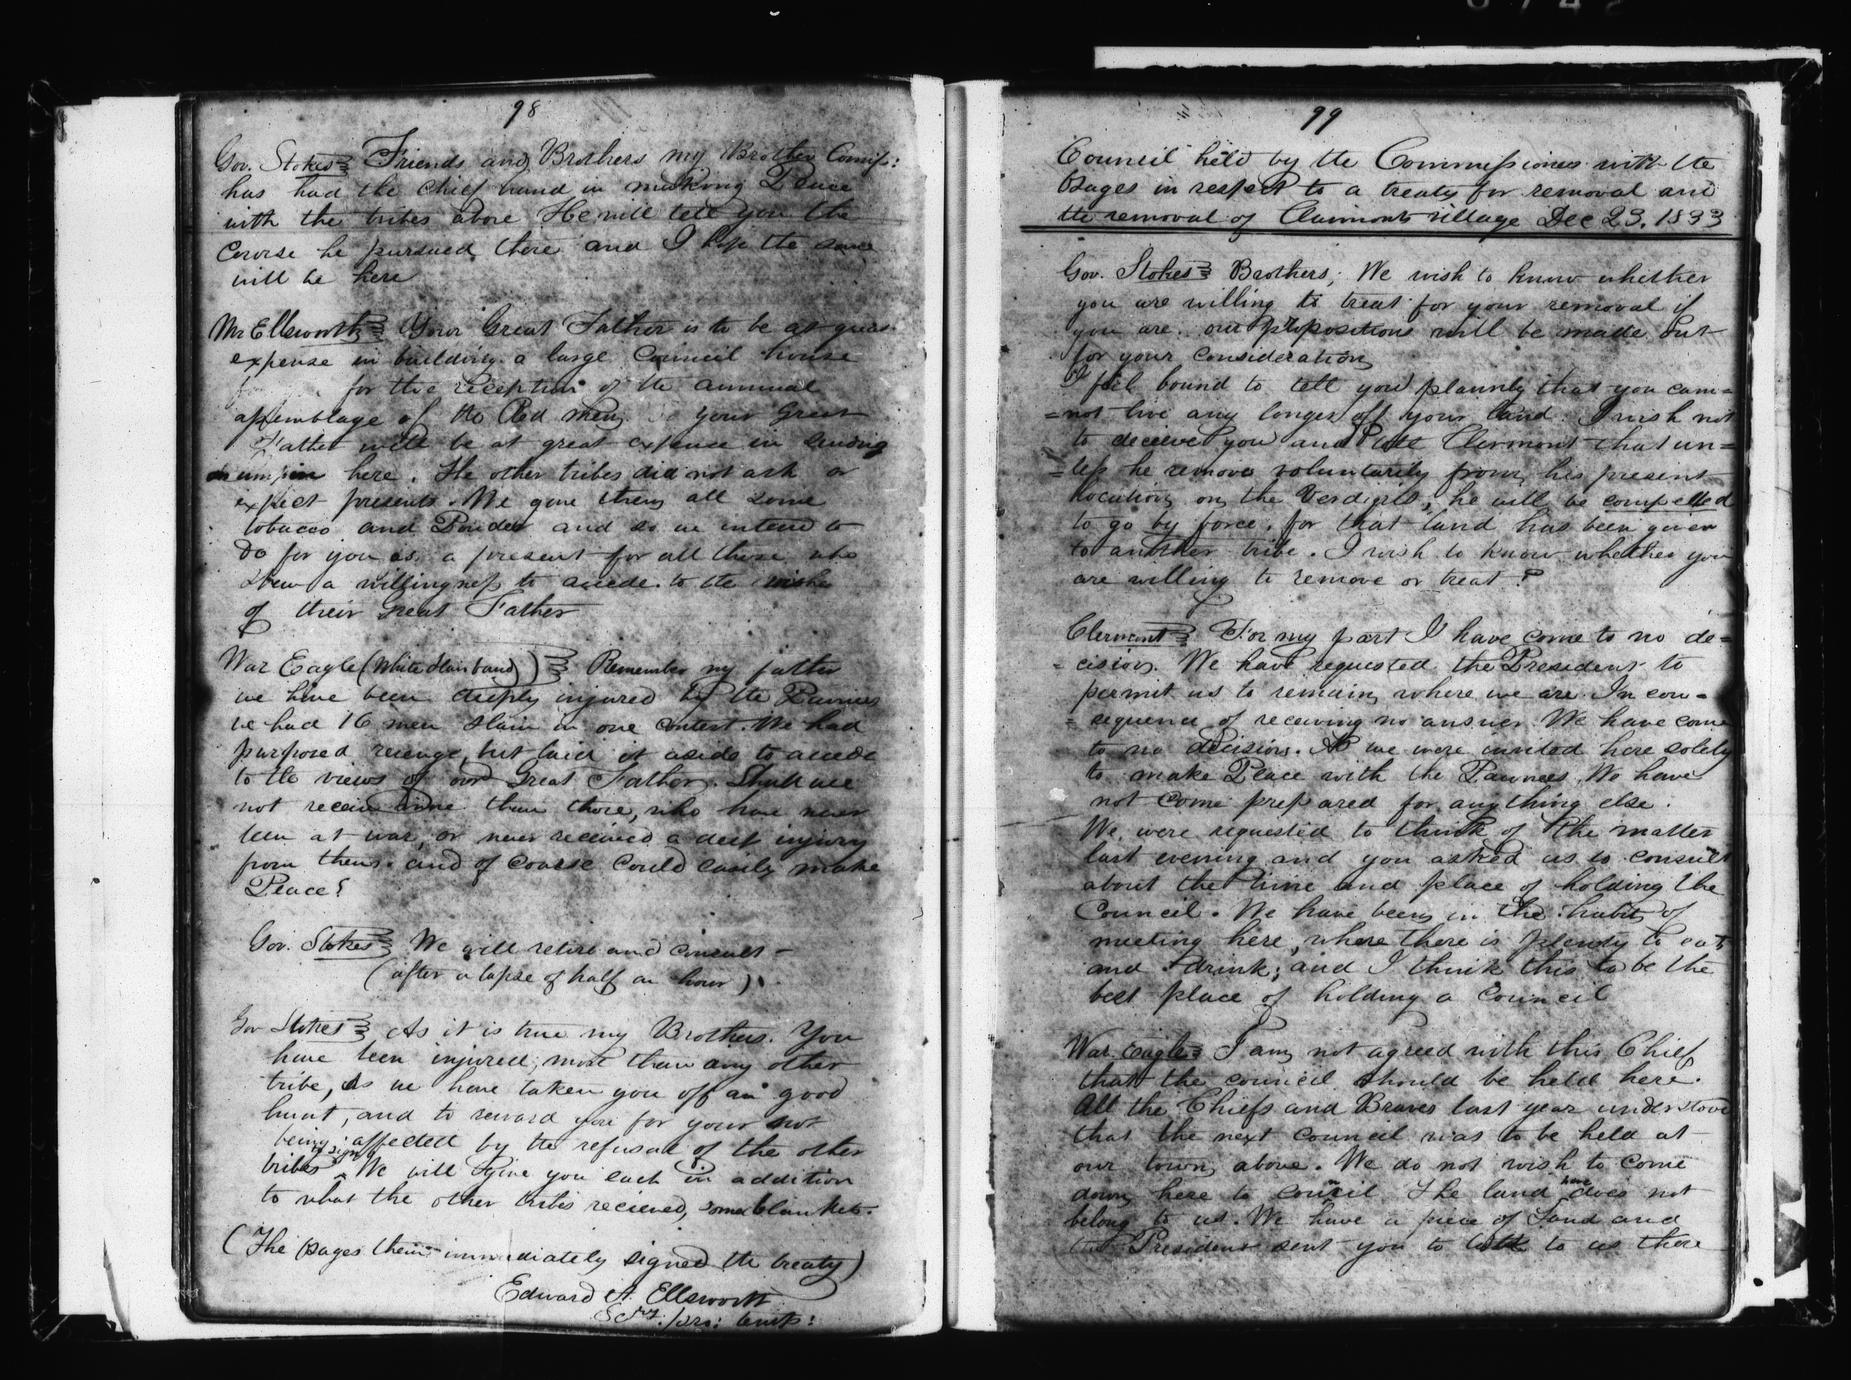 98
Gov. Stokes Friends and Brothers my Brother Comis:
has had the chief hand in making Peace
with the tribes above He will tell you the
course he pursued there and I hope the same
will be here
Mr Ellsworth Your Great Father is to be at great
expense in building a large Council house
for the reception of the annual
assemblage of the Red men your Great
Father will be at great expense in sending
here. The other tribes did not ask or
expect presents We gave them all some
tobacco and Powder and so we intend to
do for you as a present for all those who
shew a willingness to accede to the wishes
of their Great Father
War Eagle (White Hair band) Remember my father
we have been deeply injured by the Pawnees
we had 16 men slain in one contest. We had
purposed revenge but laid it aside to accede
to the views of our Great Father. Shall we
not receive more than those, who have never
been at war, or never received a deep injury
from them and of coarse could easily make
Peace?
Gov. Stokes We will retire and consult –
(after a lapse of half an hour)
Gov Stokes As it is true my Brothers. You
have been injured, more than any other
tribe, as we have taken you off a good
hunt, and to reward you for your not
being affected by the refusal of the other
tribes to sign We will give you each in addition
to what the other tribes recieved, some blankets.
(The Osages then immediately signed the treaty)
Edward A. Ellsworth
Secry. pro: temp:
99
Council held by the Commissioners with the
Osages in respect to a treaty for removal and
the removal of Clairmonts village Dec 23. 1833
Gov. Stokes Brothers; We wish to know whether
you are willing to treat for your removal if
you are. our propositions will be made out
for your consideration
I feel bound to tell you plainly that you can=
=not live any longer off your land. I wish not
to deceive you and tell Clermont that un=
=less he removes voluntarily from his present
location on the Verdigris, he will be compelled
to go by force. for that land has been given
to another tribe. I wish to know whether you
are willing to remove or treat?
Clermont For my part I have come to no de=
=cision. We have requested the President to
permit us to remain where we are. In con=
=sequence of receiving no answer We have come
to no decision. As we were invited here solely
to make Peace with the Pawnees We have
not come prepared for any thing else.
We were requested to think of the matter
last evening and you asked us to consult
about the time and place of holding the
Council. We have been in the habit of
meeting here, where there is plenty to eat
and drink; and I think this to be the
best place of holding a Council
War Eagle I am not agreed with this Chief
that the council should be held here.
All the Chiefs and Braves last year understood
that the next council was to be held at
our town above. We do not wish to come
down here to council The land here does not
belong to us. We have a piece of Land and
the President sent you to talk to us there